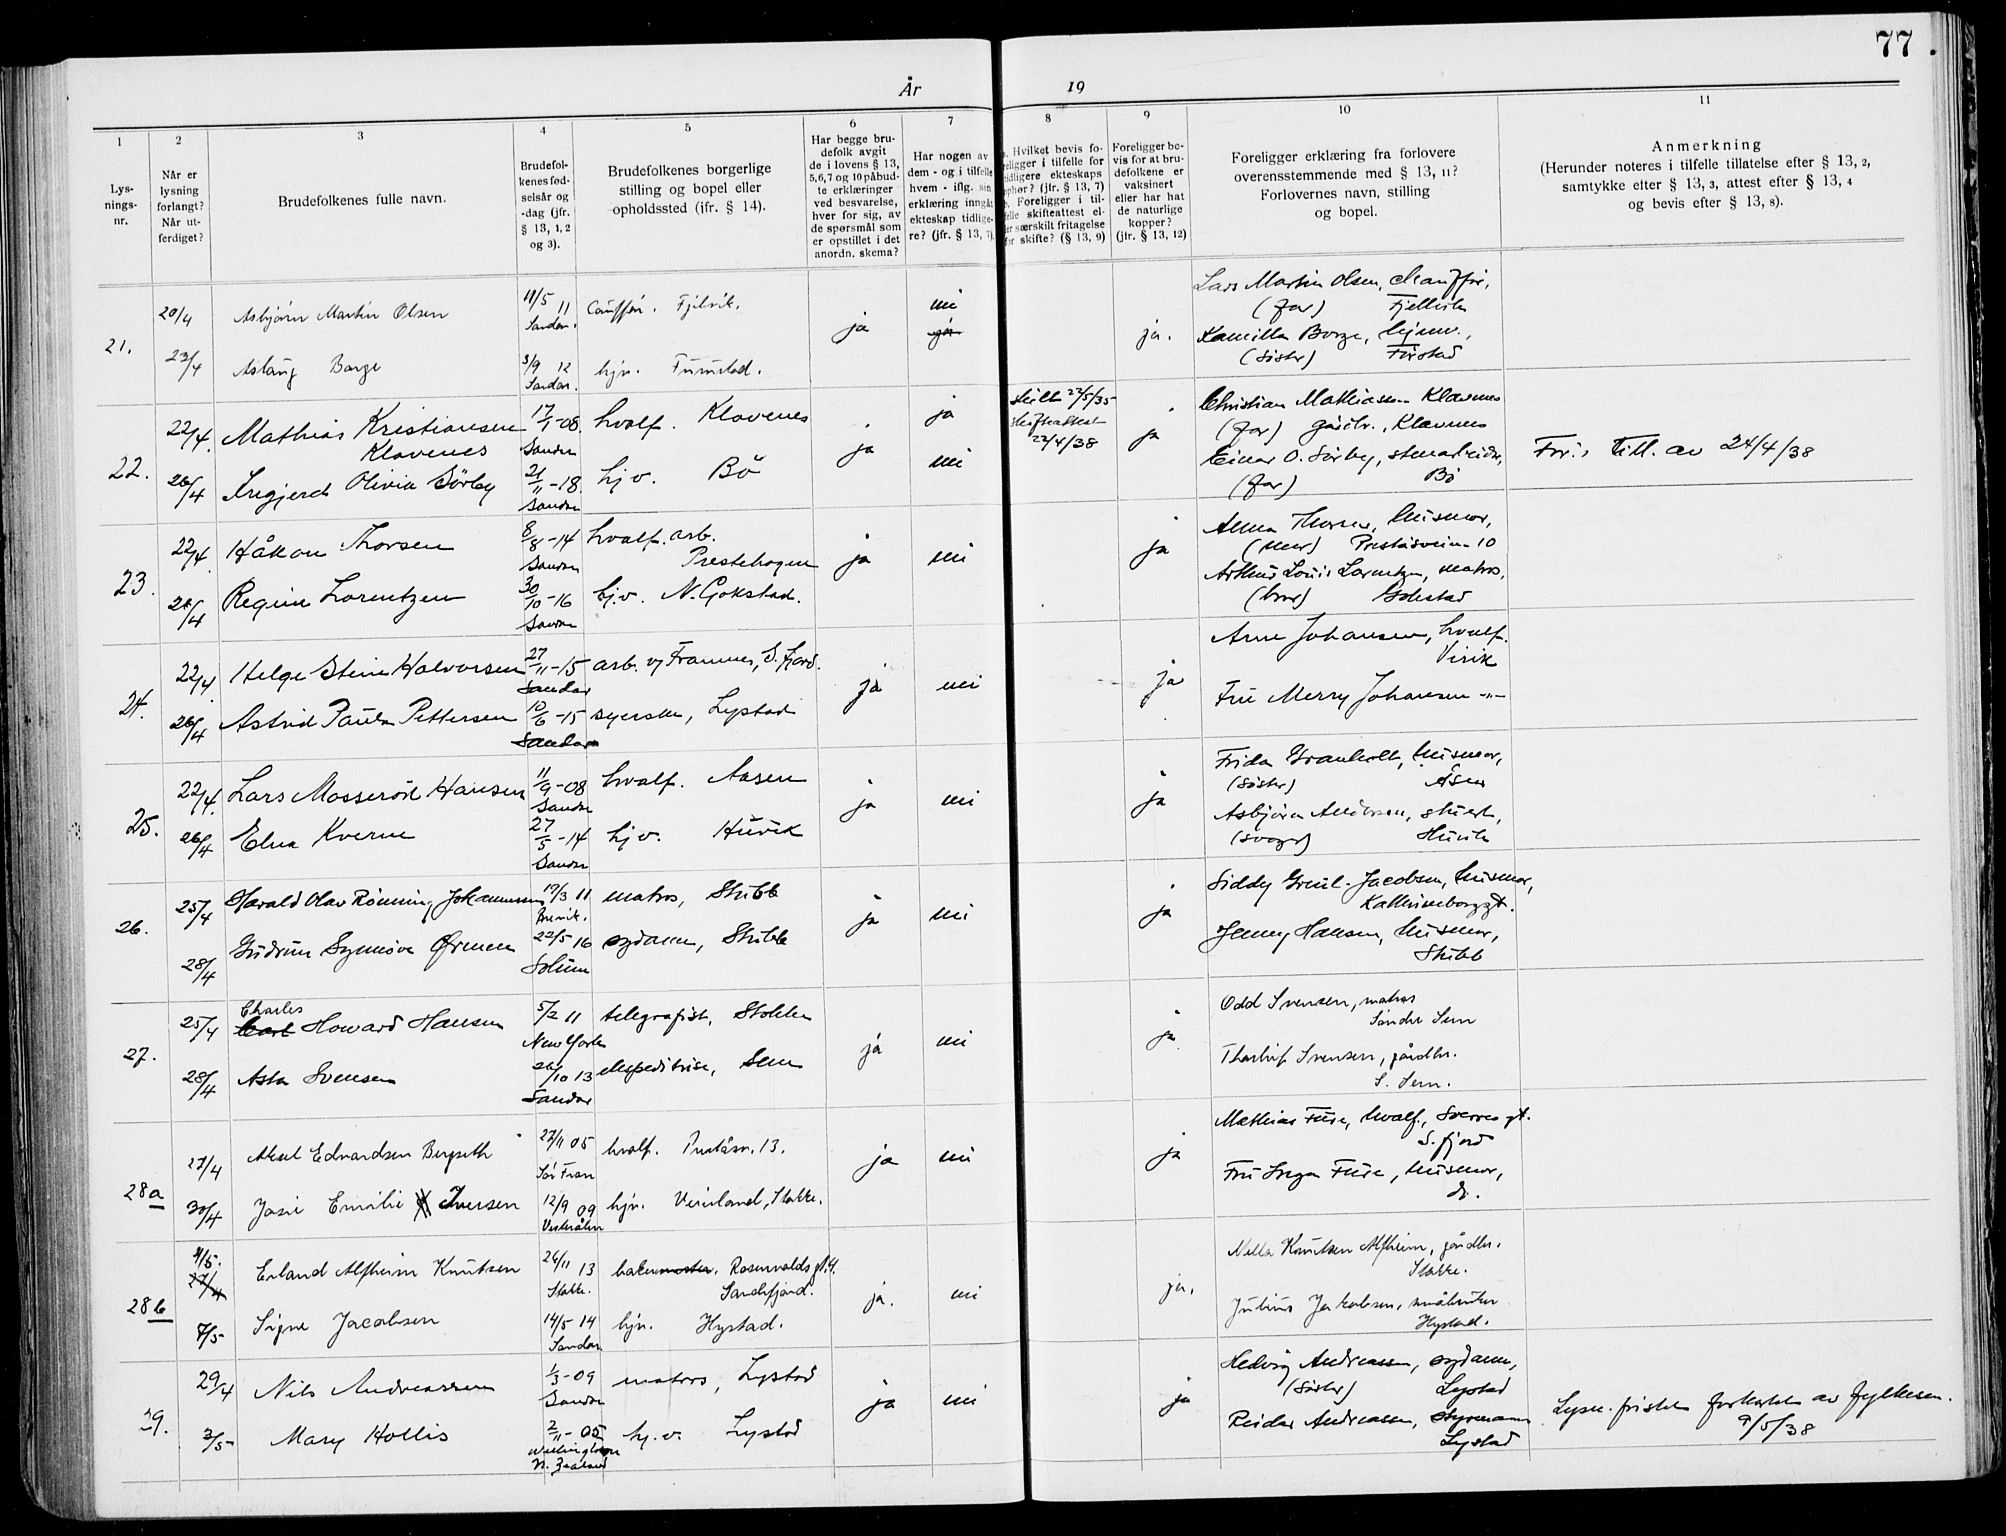 77.
År 19
1
2
3
4
5
6
7
8
9
10
11
Lys-
nings-
nr.
Når er
lysning
forlangt?
Når ut-
ferdiget?
Brudefolkenes fulle navn.
Brudefol-
kenes fød-
selsår og
-dag (jfr.
§ 13, 1, 2
og 3).
Brudefolkenes borgerlige
stilling og bopel eller
opholdssted (ifr. § 14).
Har begge bru-
defolk avgit
de i lovens § 13,
5,6,7 og 10 påbud-
te erklæringer
ved besvarelse,
hver for sig, av
de spørsmål som
er opstillet i det
anordn. skema?
Har nogen av
dem - og i tilfelle
hvem - iflg. sin
erklæring inngåt
ekteskap tidlige-
re? (jfr. § 13, 7).
Hvilket bevis fo-
religger i tilfelle for
tidligere ekteskaps
ophør? (jfr. § 13, 7)
Foreligger i til-
felle skifteattest el-
ler særskilt fritagelse
for skifte? (§ 13, 9)
Foreligger be-
vis for at bru-
defolkene er
vaksinert
eller har hat
de naturlige
kopper?
(jfr. § 13, 12)
Foreligger erklæring fra forlovere
overensstemmende med § 13, 11?
Forlovernes navn, stilling
og bopel.
Anmerkning
(Herunder noteres i tilfelle tillatelse efter § 13, 2,
samtykke efter § 13, 3, attest efter § 13, 4
og bevis efter § 13, 8).
21.
20/4 Asbjörn Martin Olsen 11 Sandar.
ja ja.
Lars Martin Olsen,
(far)
23/4 Aslaug Borge 3/9 12 Sandar. hjv. Furustad.
Kamilla Borge,
(söster)
22.
22/4. Mathias Kristiansen Klavenes 17/1-08. Sandar hvalf. Klavenes
ja ja skilt 22/5/35 skifteattest 22/4/38 ja
Christian Mathiasen Klavenes
(far) gårdbr., Klavenes
26/4 Ingjerd Olivia Sörby 21/11-18. Sandar hjv. Bö
nei
Einar O. Sörby, stenarbeider,
(far) Bö
For.s till. av 24/4/38
23.
22/4. Håkon Thorsen 8/8-14 Sandar hvalf.arb. Prestehagen
ja nei ja
Anna Thorsen, husmor,
(mor) Preståsvein 10
26/4 Regine Lorentzen 30/10-16 Sandar hj.v. N. Gokstad.
Arthur Louis Lorentzen, matros,
(bror) Gokstad
24.
22/4. Helge Stein Halvorsen 27/11-15 Sandar arb. v/ Framnes, S.fjord.
ja nei ja
Arne Johansen, hvalf.
Virik
26/4 Astrid Paula Pettersen 10/6-15 Sandar syerske, Lystad
Fru Merry Johansen -"-
25.
22/4. Lars Mosseröd Hansen 11/9-08 Sandar hvalf. Aasen
ja nei ja
Frida Granholt, husmor,
(söster) Åsen
26/4 Elna Kverne 27/5-14 Sandar hjv. Huvik
Asbjörn Andersen, stuert,
(svoger) Huvik
26.
25/4 Harald Olav Rönning Johannesen 19/3 11 Brevik. matros, Stubb
ja nei ja
Siddy Jacobsen, husmor,
28/4 Gudrun Synnöve Örmen 22/5 16 Solum sydame, Stubb
Jenny Hansen, husmor,
Stubb
27.
25/4 Charles Howard Hansen 5/2 11 New York telegrafist, Stokke
ja nei ja
Odd Svensen, matros
Söndre Sem
28/4 Asta Svensen 26/10 13 Sandar ekspeditrise, Sem
Thorleif Svensen, gårdbr.
S. Sem.
28a
27/4 Aksel Edvardsen Bergseth 27/11 05 hvalf. Preståsv. 13.
ja nei ja
Mathias Fure, hvalf., Sverres gt.
S.fjord
30/4 Josie Emilie Iversen 12/9 09 hjv. Stokke.
Fru Inga Fure, husmor,
do.
28b
4/5. 27/4 Erland Alfheim Knutsen 26/11 13 Stokke. bakermester. Rosenvolds gt. 4. Sandefjord.
ja. nei ja,
Knutsen Alfheim, gårdbr.
Stokke.
7/5 Signe Jacobsen 14/5 14 Sandar. hjv. Hystad.
Julius Jakobsen, småbruker
Hystad.
29.
29/4 Nils Andreassen 1/3-09 Sandar matros, Lystad
ja nei ja
Hedvig Andreassen, sydame,
(söster) Lystad
3/5 Mary Hollis 2/11-05 Wellington N. Zealand hj.v. Lystad
Reidar Andreassen, styrmann
Lystad
Lysn. fristen forkortet av fylkesm.
9/5/38